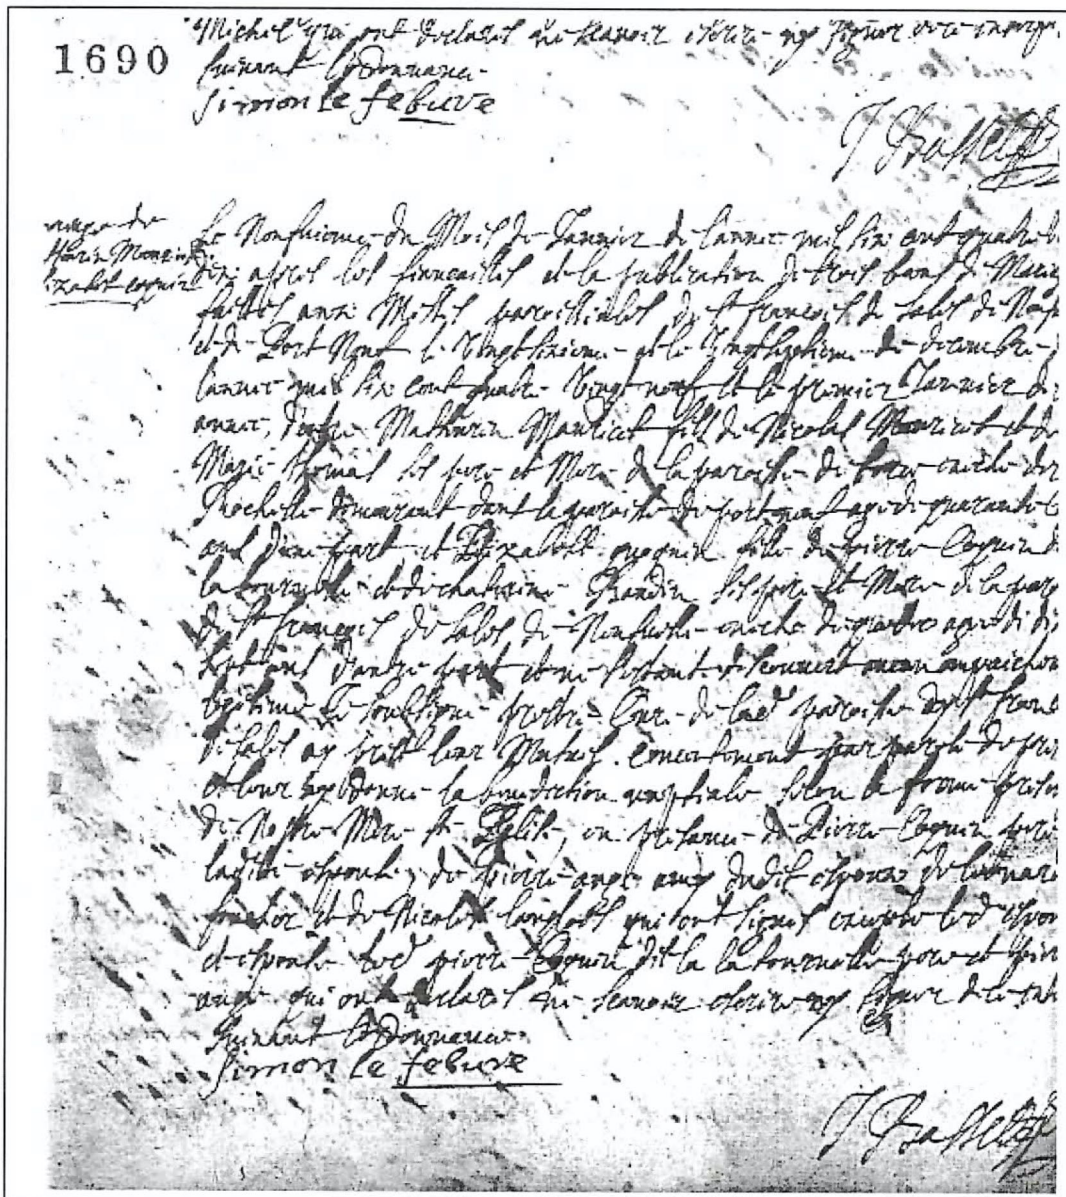 1690
Michel qui ont declares ne scavoir escrire ny signer de ce
suivant l'ordonnance
Simon le febure
J Basset
mariage de
Maurice
Elizabet coquin
Le Neufvieme du Mois de Janvier de l'annee mil six cent quatre
dix apres les fiancailles et la publication de trois bans de Maria
faittes aux Messes paroissialles de St francois de Sales de Neuf
et de Port Neuf le vingt sixieme et le vingt septieme de decembre
l'annee mil six cent quatre vingt neuf et le premier Janvier de
annee, d'entre Mathurin Mauricet fils de Nicolas Mauricet et de
Marie thomas ses pere et Mere de la paroisse de
Rochelle demeurant dans la paroisse de port neuf age de quarante
ans d'une part et Elizabeth coquin fille de pierre Coquin d
la tournelle et de chaterine Baudin ses pere et Mere de la par
de St francois de Sales de Neufville eveche de quebec agee de di
sept ans d'autre part et ne s'estant descouvert aucun empeschem
legitime Je soubsigne prestre Cure de lad paroisse de St franc
de Sales ay pris leur Mutuel consentement par parole de pre
et leur ay donne la benediction nuptiale selon la forme presc
de Nostre Mere Ste Eglise, en presence de Pierre Coquin pere
ladite espouse, de pierre ange amy dudit espoux de leonard
faucher et de Nicolas langlois qui ont signes excepte led espou
et espouse led pierre Coquin dit la la tournelle pere et pierr
ange qui ont declares ne scavoir escrire ny signer de ce
suivant l'ordonnance
Simon le febure
J Basset